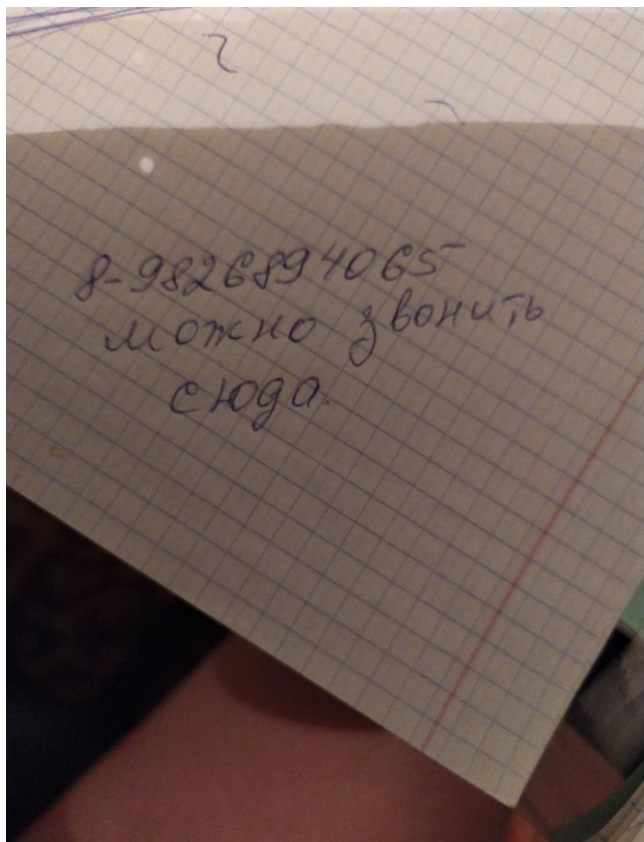 8-9826894065
можно звонить
сюда.